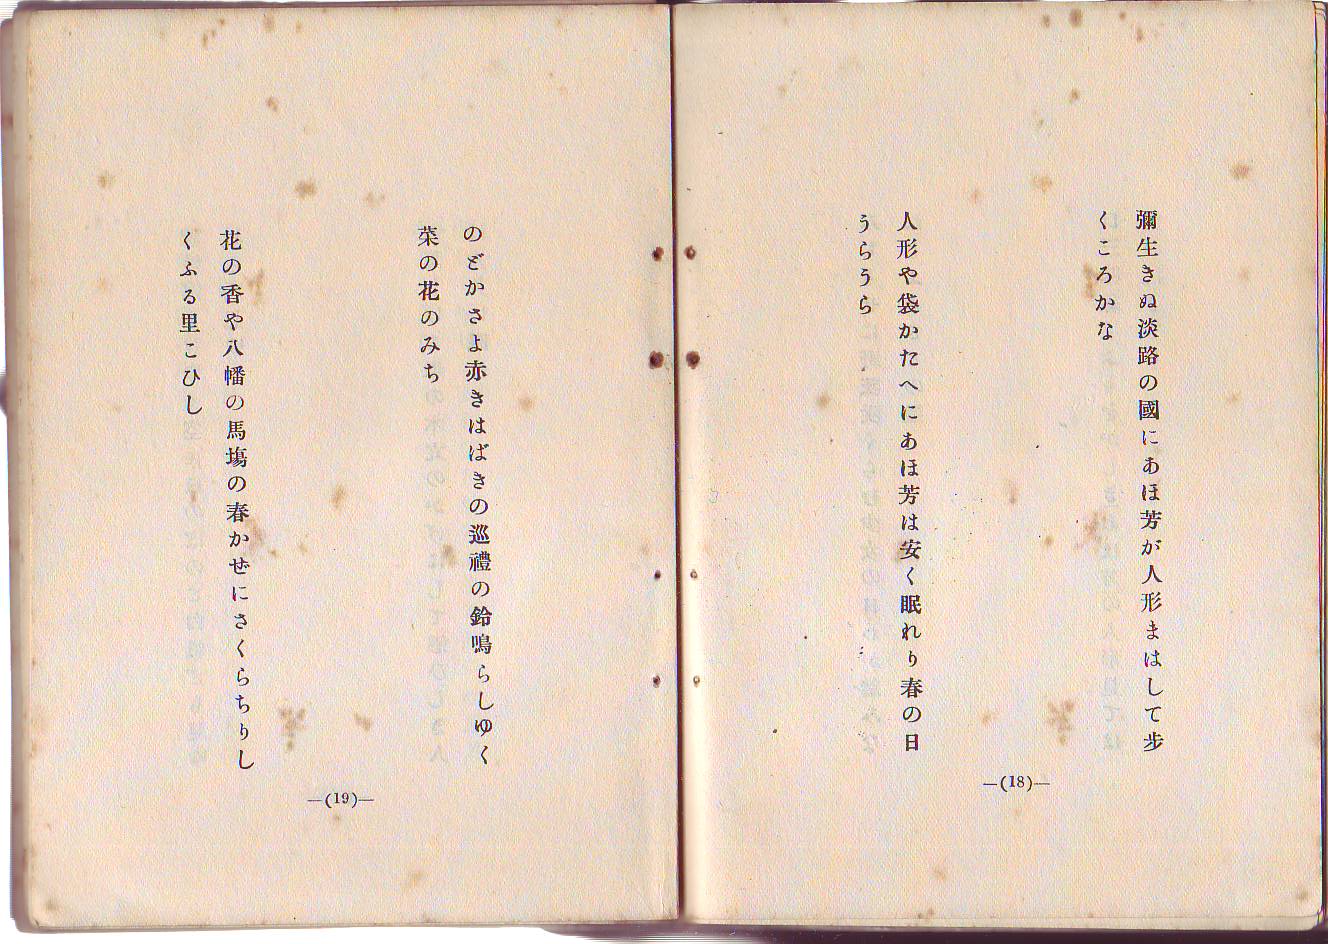 彌生きぬ淡路の國にあほ芳が人形まはして歩
くころかな
人形や袋かたへにあほ芳は安く眠れり春の日
うらうら
—(18)—
のどかさよ赤きはばきの巡禮の鈴鳴らしゆく
菜の花のみち
花の香や八幡の馬塲の春かぜにさくらちりし
くふる里こひし
—(19)—